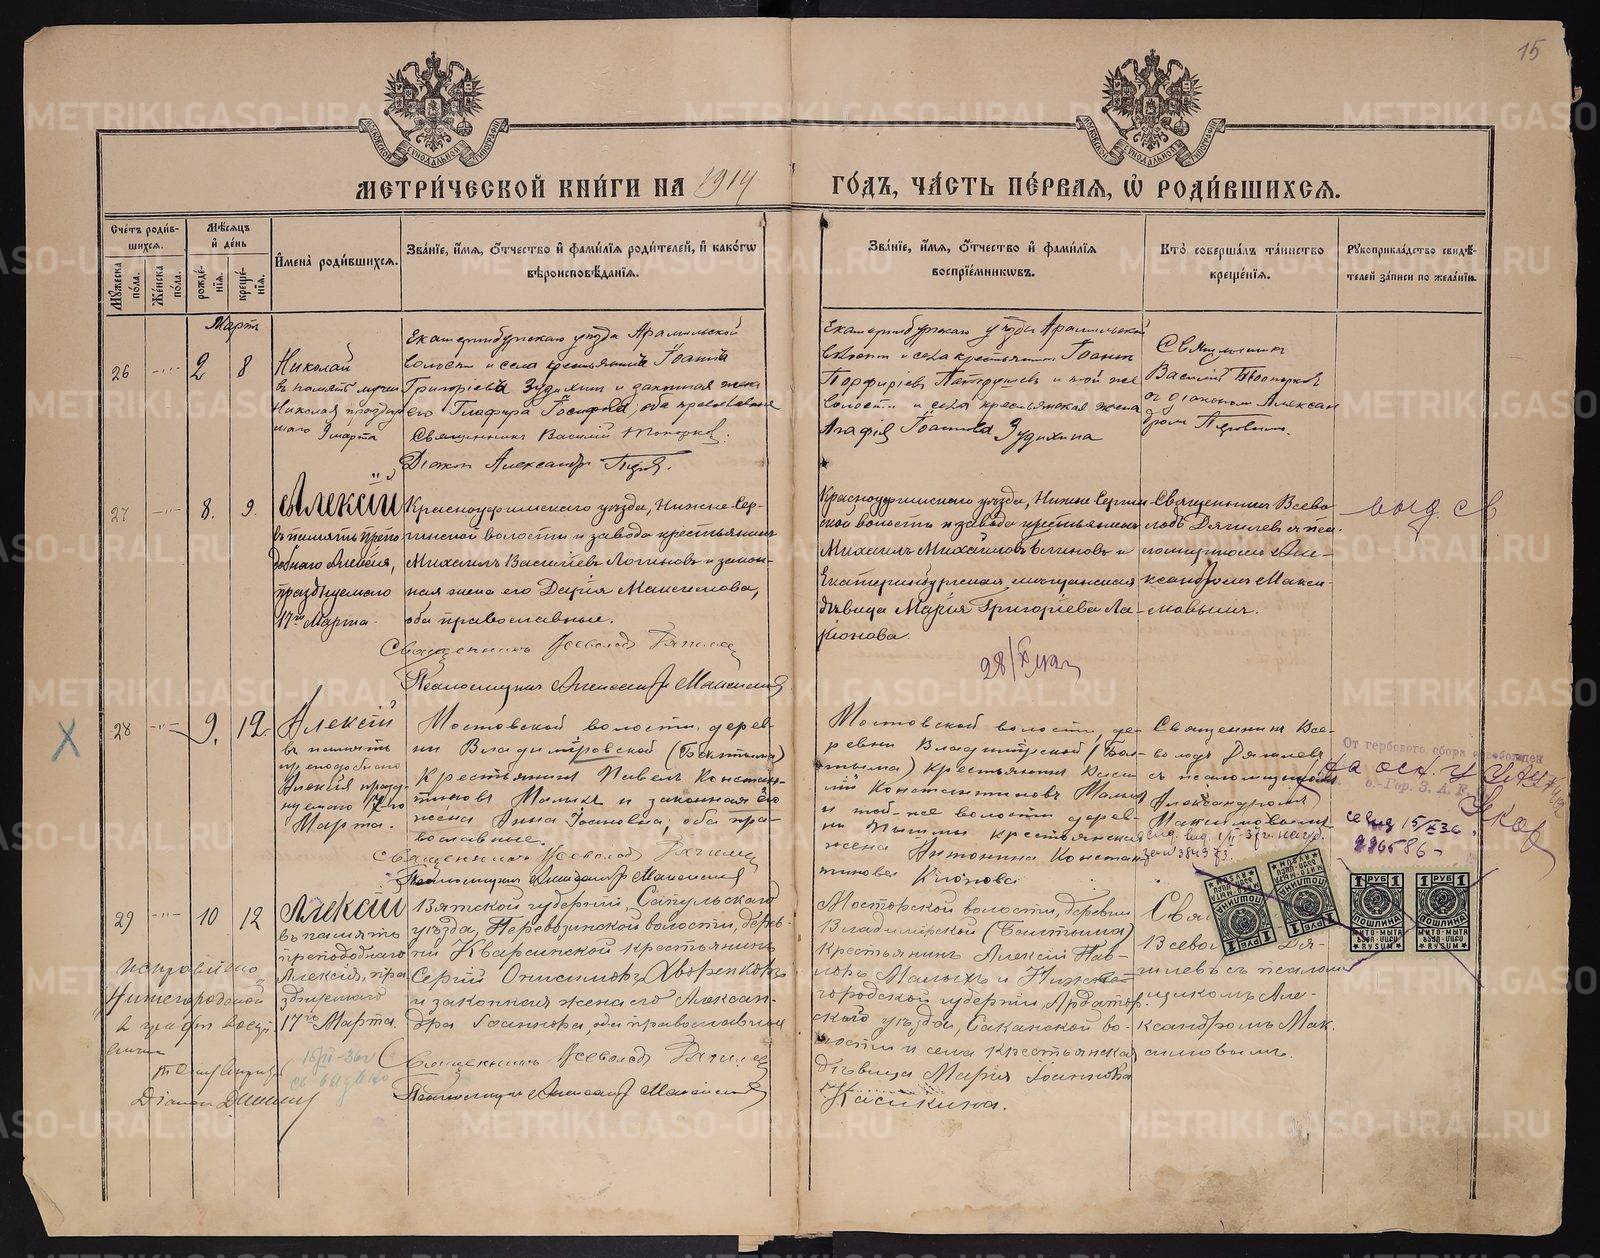 15
МОСКОВСКОЙ СѴНОДАЛЬНОЙ ТИПОГРАФІИ
МОСКОВСКОЙ СѴНОДАЛЬНОЙ ТИПОГРАФІИ
МЕТРИ́ЧЕСКОЙ КНИ́ГИ НА 1914 ГО́ДЪ, ЧА́СТЬ ПЕ́РВАЯ, Ѡ҆ РОДИ́ВШИХСЯ.
Сче́тъ роди́вшихся.
Му́жеска по́ла.
Же́нска по́ла.
Мѣ́сяцъ и҆ де́нь
рожде́нія.
креще́нія.
И҆мена̀ роди́вшихся.
Зва́ніе, и҆́мя, ѻ҆́тчество и҆ фами́лія роди́телей, и҆ како́гѡ вѣроисповѣ́данія.
Зва́ніе, и҆́мя, ѻ҆́тчество и҆ фами́лія воспріе́мникѡвъ.
Кто̀ соверша́лъ та́инство креще́нія.
Рукоприкла́дство свидѣ́телей за́писи по жела́нію.
Мартъ
26 2 8
Николай
въ память мучен.
Николая празду
маго 9 марта
Екатеринбургскаго уѣзда Арамильской
волости и села крестьянинъ Іоаннъ
Григоріевъ Зудихинъ и законная жена
его Глафира Іосифова, оба православные
Священникъ Василій Топорковъ.
Діаконъ Александръ
Екатеринбургскаго уѣзда Арамильской
волости и села крестьянинъ Іоаннъ
Порфиріевъ и той же
волости и села крестьянская жена
Агафія Іоаннова Зудихина
Священникъ
Василій Топорковъ
съ діакономъ Алексан
дромъ
27 8. 9.
Алексій
въ память препо
добнаго Алексія,
празднуемаго
17го Марта
Красноуфимскаго уѣзда, Нижне-Сер-
гинской волости и завода крестьянинъ
Михаилъ Василіевъ Логиновъ и закон-
ная жена его Дарія Максимова,
оба православные.
Священникъ Всеволодъ Дягилевъ
Псаломщикъ Александръ Максимовъ
Красноуфимскаго уѣзда, Нижне Сергин
ской волости и завода крестьянинъ
Михаилъ Михайловъ и
Екатеринбургская мѣщанская
дѣвица Марія Григоріева Ла-
ріонова.
Священникъ Всево
лодъ Дягилевъ съ пса
ломщикомъ Але-
ксандромъ Макси-
мовымъ.
выд св
28 9. 12.
Алексій
въ память
преподобнаго
Алексія празд
нуемаго 17-го
Марта.
Мостовской волости, дерев-
ни Владимірской (Балтыма)
крестьянинъ Павелъ Констан-
тиновъ Малыхъ и законная его
жена Анна Іоаннова, оба пра-
вославные.
Священникъ Всеволодъ Дягилевъ
Псаломщикъ Александръ Максимовъ
Мостовской волости, де-
ревни Владимірской (Бал
тыма) крестьянинъ
Константиновъ Малыхъ
и той-же волости дерев-
ни Пышмы крестьянская
жена Антонина Констан
тинова
Священникъ Все-
володъ Дягилевъ
съ псаломщикомъ
Александромъ
Максимовымъ
От гербового сбора освобожден
15/X 36
226586
29 10. 12
Алексій
въ память
преподобнаго
Алексія, пра
зднуемаго
17го Марта.
Вятской губерніи, Сапульскаго
уѣзда, Перевозинской волости, дерев-
ни Кварсинской крестьянинъ
Сергій Онисимовъ Хворенковъ
и законная жена его Алексан-
дра Іоаннова, оба православные
Священникъ Всеволодъ Дягилевъ
Псаломщикъ Александръ Максимовъ
Мостовской волости, деревни
Владимірской (Балтыма)
крестьянинъ Алексій Пав-
ловъ Малыхъ и Нижего-
городской губерніи, Ардатов-
скаго уѣзда, Саканской во-
лости и села крестьянская
дѣвица Марія Іоаннова
Касикина.
Свя
Всево Дя-
гилевъ съ псалом
щикомъ Але-
ксандромъ Мак-
симовымъ.
1 РУБ ПОШЛИНА
1 РУБ ПОШЛИНА
1 РУБ ПОШЛИНА
1 РУБ ПОШЛИНА
исправлено
Нижегородской
METRIKI.GASO-URAL.RU